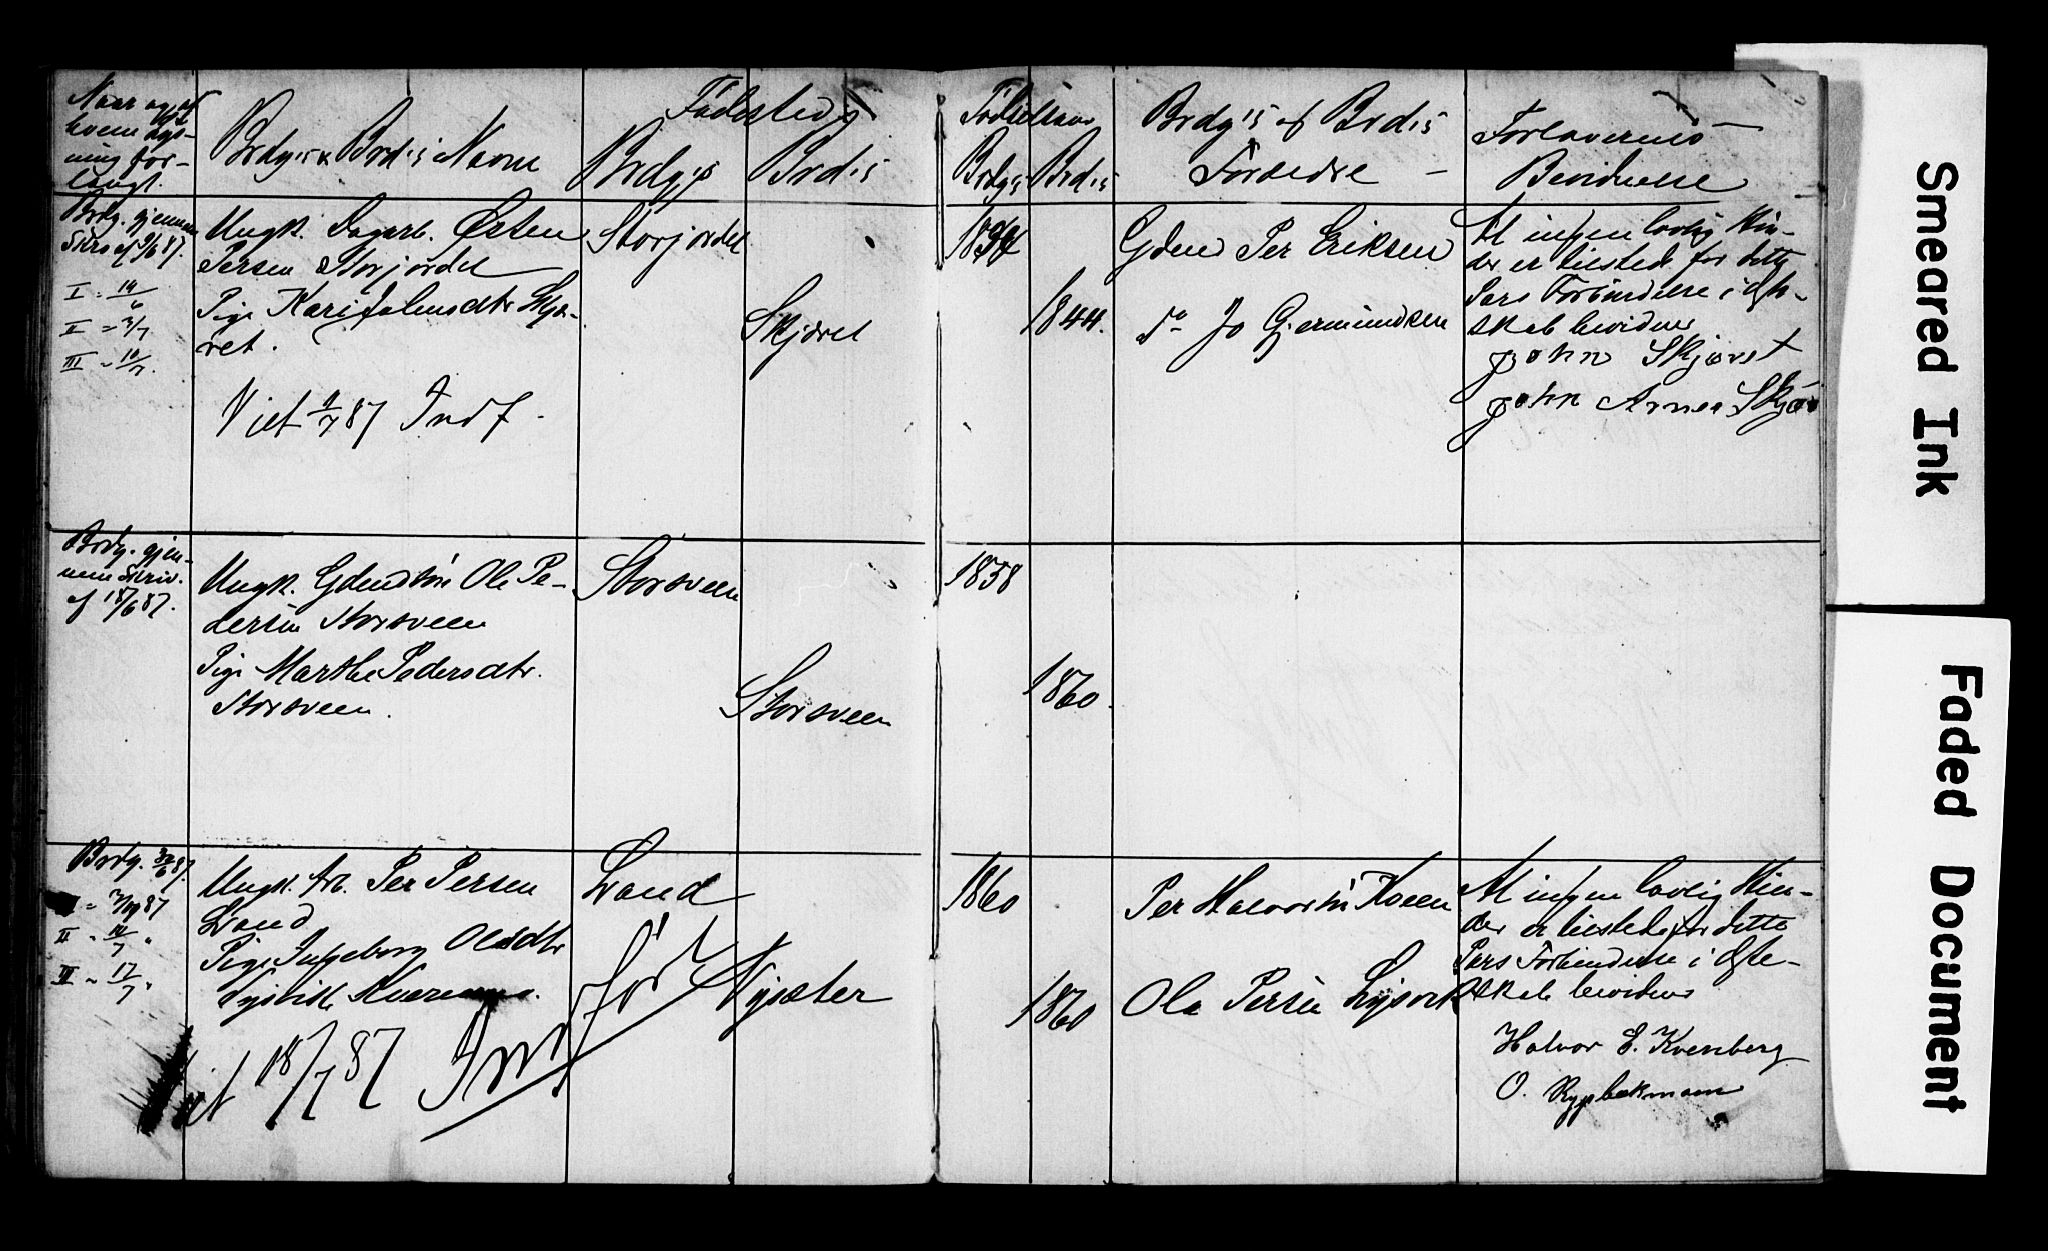 Naar og af
hvem Lys-
ning for-
langt.
Brdg.s & Brd.s Navn
Fødested
Brdg.s
Brd.s
Fødselsaar
Brdg.s
Brd.s
Brdg.s og Brd.s
Forældre
Forlovernes
Bevidnelse
Brdg. gjennem
Skriv. af 9/6 87.
I = 19/6
II = 3/7
III = 10/7
Ungk. Dagarb. Østen
Persen Storjordet
Pige Kari Johnsdtr Skjæ-
ret.
Viet 1/7 87 Indf.
Storjordet
Skjæret
1844.
Gdmd Per Eriksen
do Jo Gjermundsen
At ingen lovlig Hin-
der er tilstede for dette
Pars Forbindelse i Ægte-
skab bevidnes
John Skjæret
John Arnesn Skjær
Brdg. gjen-
nem Skriv.
af 18/6 87.
Ungk. Gdmdsøn Ole Pe-
dersen Storsveen
Pige Marthe Pedersdtr.
Storsveen.
Storsveen
Storsveen
1858
1860
Brdg. 30/6 87.
I = 3/7 87
II = 10/7 "
III = 17/7 "
Ungk. Arb. Per Persen
Land
Pige Ingeborg Olsdtr
Viet 18/7 87 Indført
Land
Nysæter
1860
1860
Per Halvorsen Moen
Ola Persen
At ingen lovlig Hin-
der er tilstede for dette
Pars Forbindelse i Ægte-
skab bevidnes
Halvor E. Kvenberg
O. Rypbakmoen
Smeared Ink
Faded Document